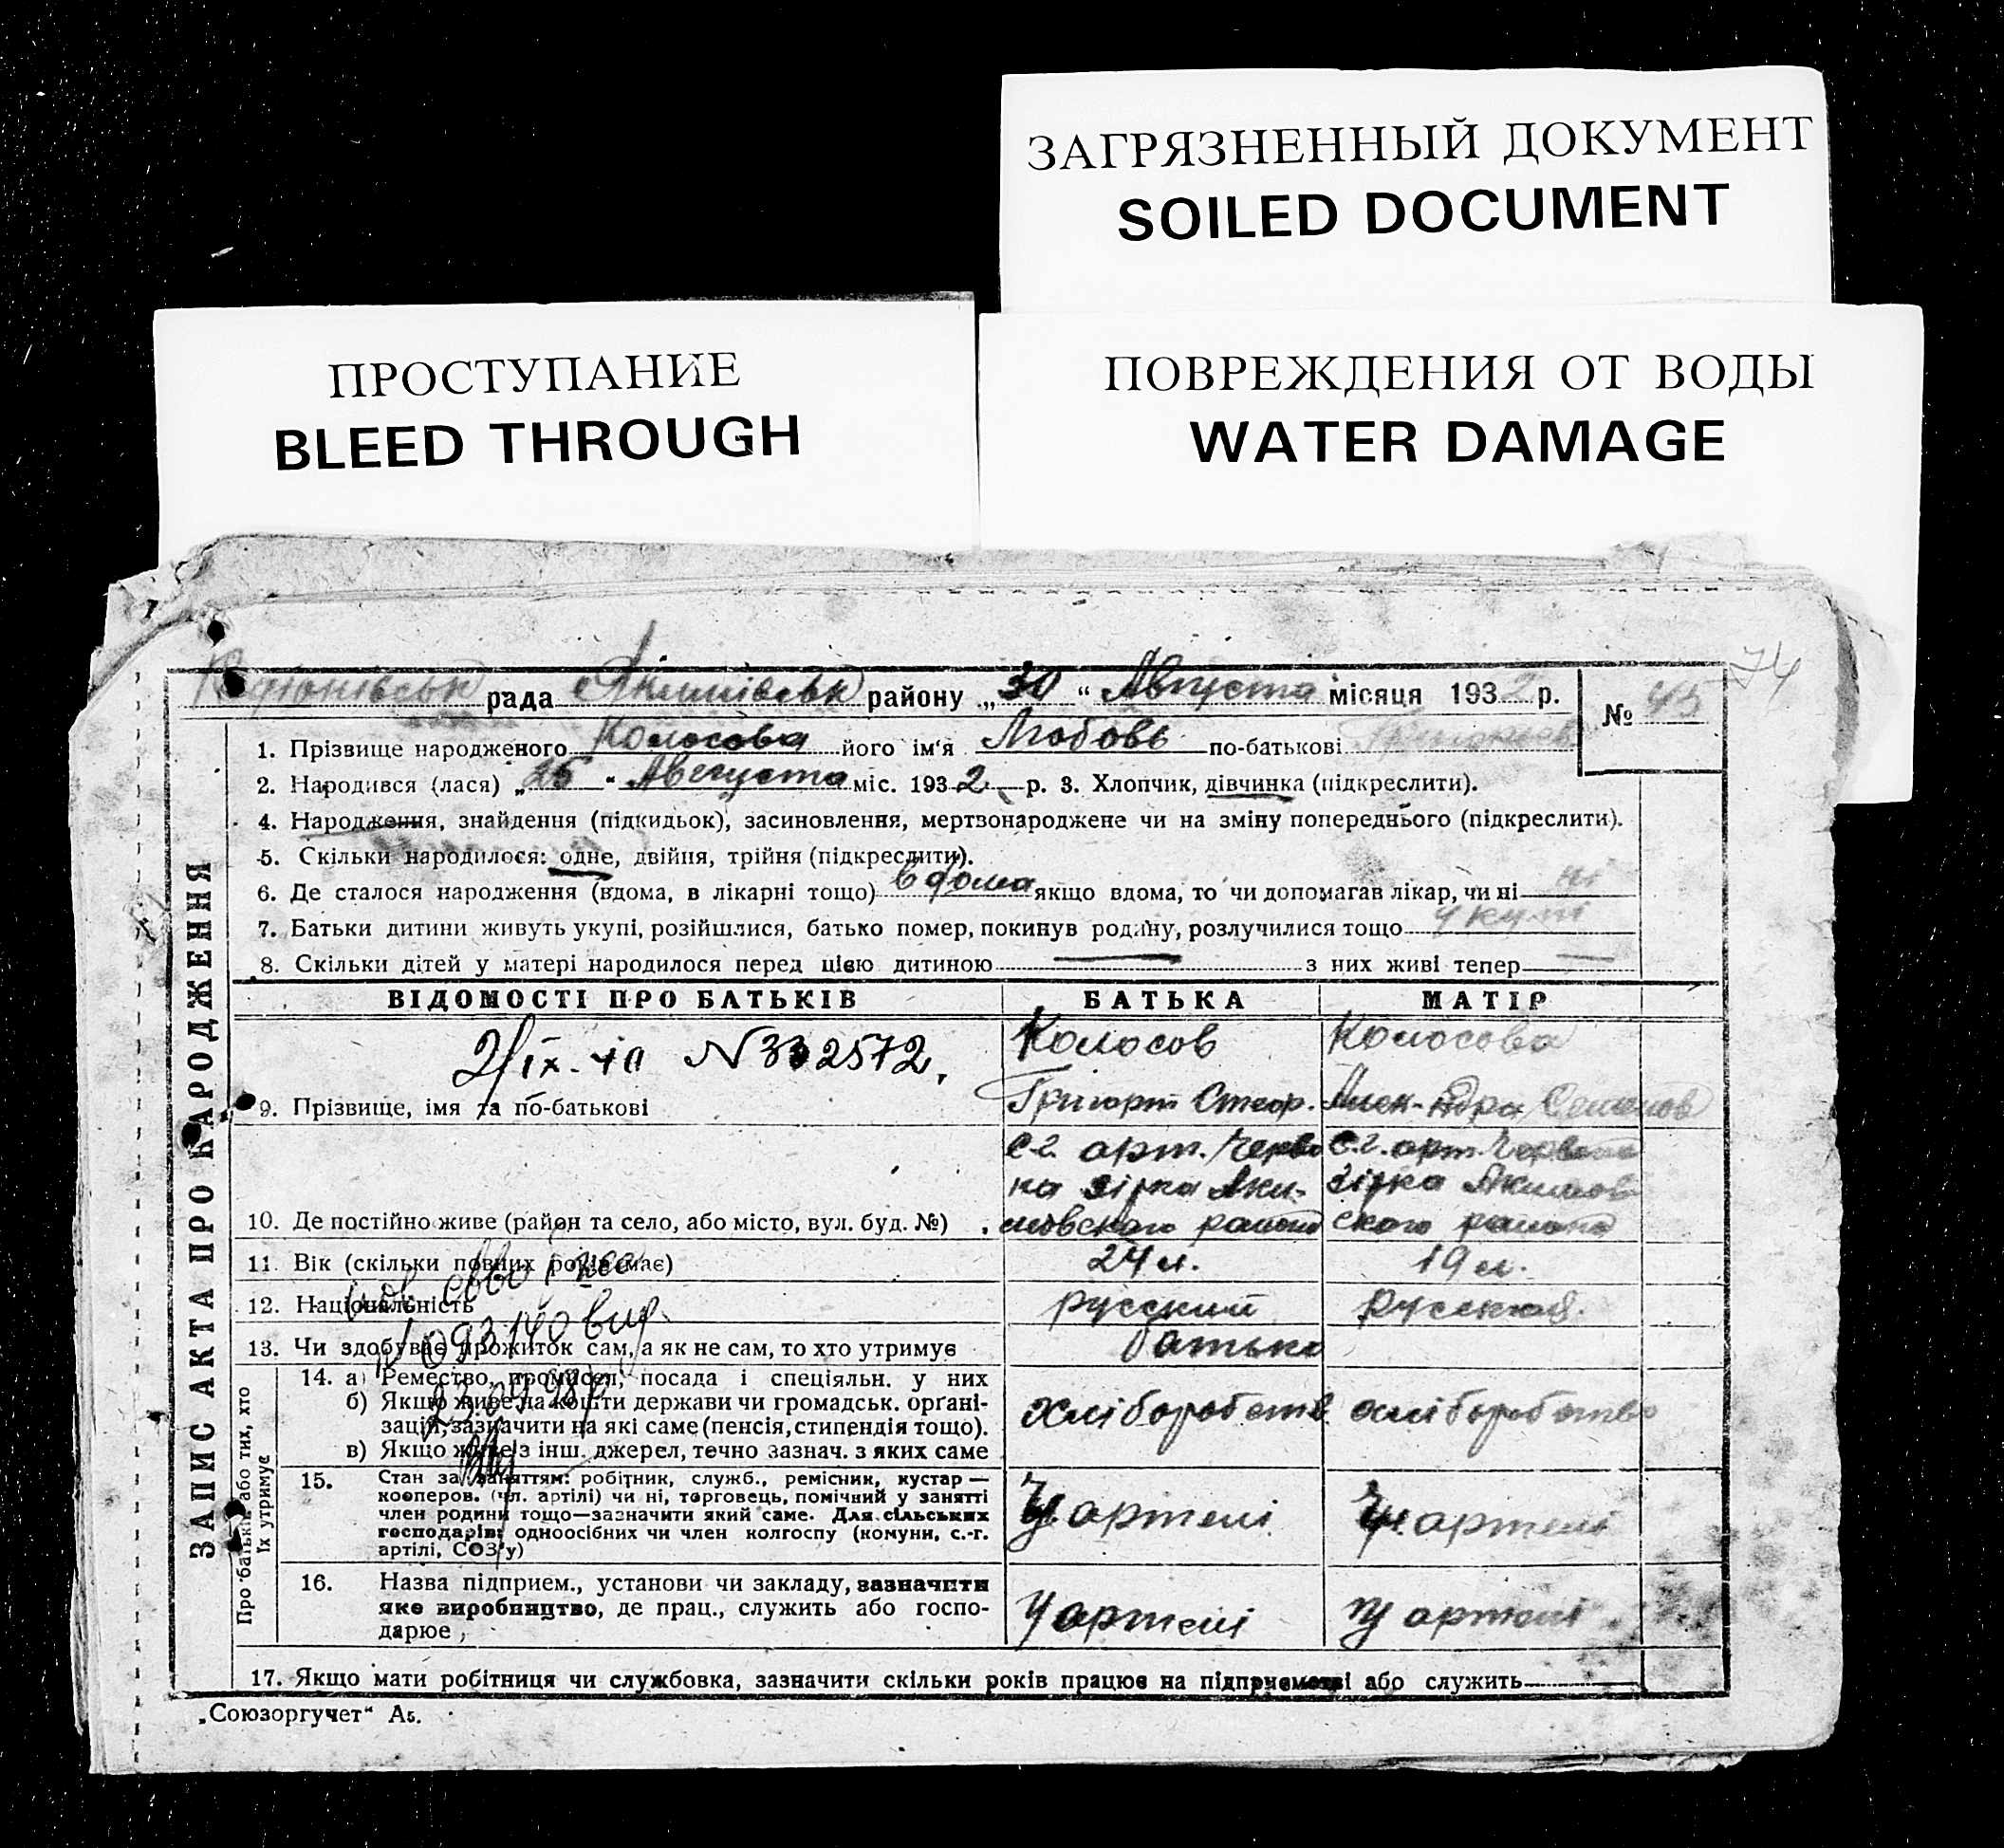 ЗАГРЯЗНЕННЫЙ ДОКУМЕНТ
SOILED DOCUMENT
ПРОСТУПАНИЕ
BLEED THROUGH
ПОВРЕЖДЕНИЯ ОТ ВОДЫ
WATER DAMAGE
74
рада Якимівськ району „30“ Августа місяця 1932 р. № 45
1. Прізвище народженого Колосова його ім'я Любовь по-батькові
2. Народився (лася) „25“ Августа міс. 1932 р. 3. Хлопчик, дівчинка (підкреслити).
4. Народження, знайдення (підкидьок), засиновлення, мертвонароджене чи на зміну попереднього (підкреслити).
5. Скільки народилося: одне, двійня, трійня (підкреслити).
6. Де сталося народження (вдома, в лікарні тощо) вдома якщо вдома, то чи допомагав лікар, чи ні ні
7. Батьки дитини живуть укупі, розійшлися, батько помер, покинув родину, розлучилися тощо укупі
8. Скільки дітей у матері народилося перед цією дитиною — з них живі тепер —
ЗАПИС АКТА ПРО НАРОДЖЕННЯ
ВІДОМОСТІ ПРО БАТЬКІВ БАТЬКА МАТІР
N 332572. Колосов Колосова
9. Прізвище, імя та по-батькові Григорій Алек-ндра
с.г. арт. Черво с.г. арт. Червона
на зірка Аки- зірка Акимов
10. Де постійно живе (район та село, або місто, вул. буд. №) мовского района ского района
11. Вік (скільки повних років має) 24 л. 19 л.
12. Національність русский русская.
13. Чи здобуває прожиток сам, а як не сам, то хто утримує батько
23.09.98р
Про батьків або тих, хто їх утримує
14. а) Ремество, промисел, посада і спеціяльн. у них
б) Якщо живе на кошти держави чи громадськ. орґані-
зацій, зазначити на які саме (пенсія, стипендія тощо). хліборобств хліборобство
в) Якщо живе з інш. джерел, точно зазнач. з яких саме
15. Стан за заняттям: робітник, служб., ремісник, кустар —
кооперов. (чл. артілі) чи ні, торговець, помічний у занятті
член родини тощо—зазначити який саме. Для сільських Чл. артелі Чл. артелі
господарів: одноосібних чи член колгоспу (комуни, с.-г.
артілі, СОЗ'у)
16. Назва підприєм., установи чи закладу, зазначити
яке виробництво, де прац., служить або госпо- У артелі У артелі
дарює
17. Якщо мати робітниця чи службовка, зазначити скільки років працює на підприємстві або служить
„Союзоргучет“ А5.